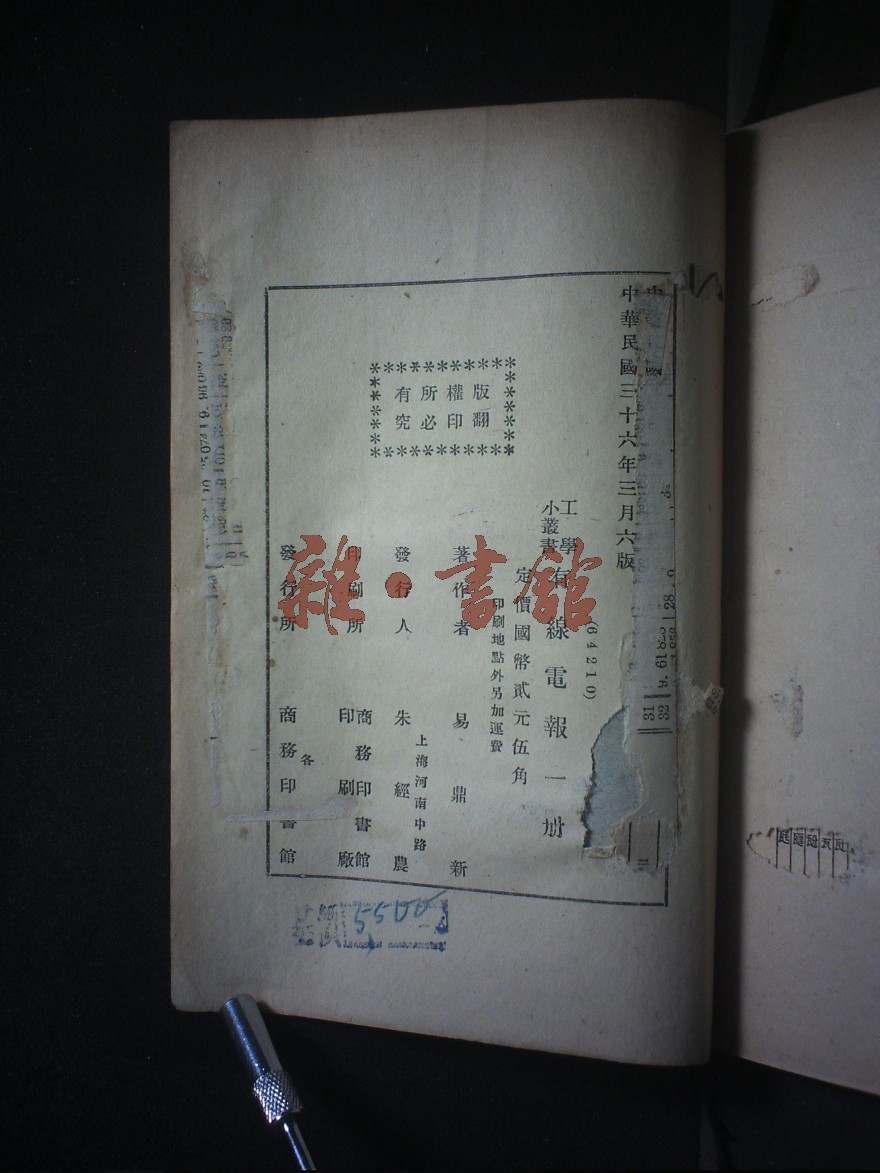 中華民國三十六年三月六版
(64210)
工學小叢書 有線電報 一册
定價國幣貳元伍角
印刷地點外另加運費
版權所有
翻印必究
著作者 易鼎新
上海河南中路
發行人 朱經農
印刷所 商務印書館印刷廠
發行所 各 商務印書館
雜·書館
5500
31
32
9.61
823
28.0